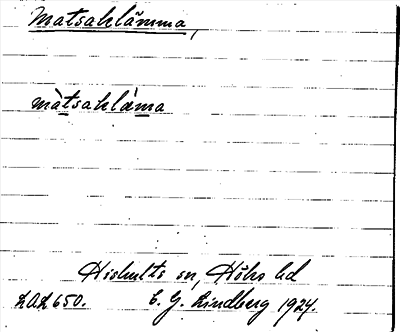 Matsaklämma,
màtsaklàma
Hishults sn, Höks hd
LAL 650. E. G. Lindberg 1924.